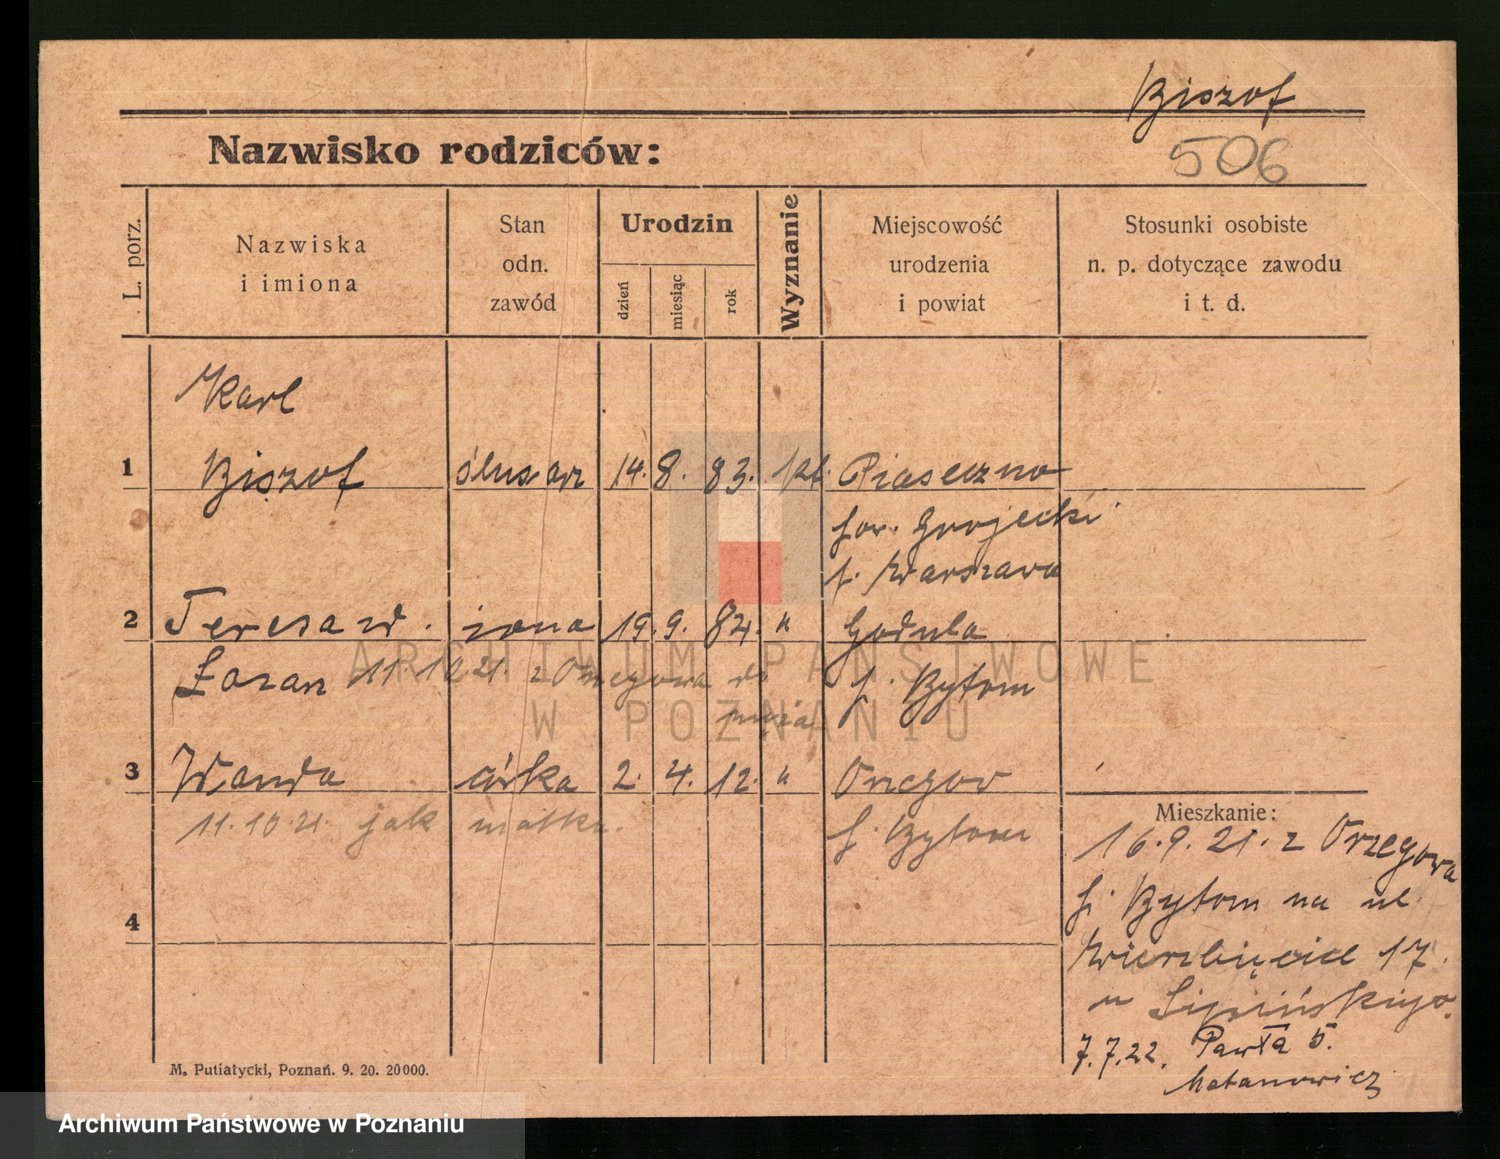 Biszof
506
Nazwisko rodziców:
L. porz.
Nazwiska
i imiona
Stan
odn.
zawód
Urodzin
dzień
miesiąc
rok
Wyznanie
Miejscowość
urodzenia
i powiat
Stosunki osobiste
n. p. dotyczące zawodu
i t. d.
Karl
1 Biszof ślusarz 14. 8. 83. kat. Piaseczno
pow. Grojecki
p. Warszawa
2 Teresa żona 19. 9. 84. " Godula
11.10.21. z Orzegowa do
p. Bytom
męża
3 Wanda córka 2. 4. 12. " Orzegow
11.10.21. jak matka. p. Bytom
4
Mieszkanie:
16.9.21. z Orzegowa
p. Bytom na ul.
Wierzbięcice 17.
u Lipińskiego.
7.7.22. Pawła 5.
Matanowicz
M. Putiatycki, Poznań. 9. 20. 20000.
ARCHIWUM PAŃSTWOWE
W POZNANIU
Archiwum Państwowe w Poznaniu